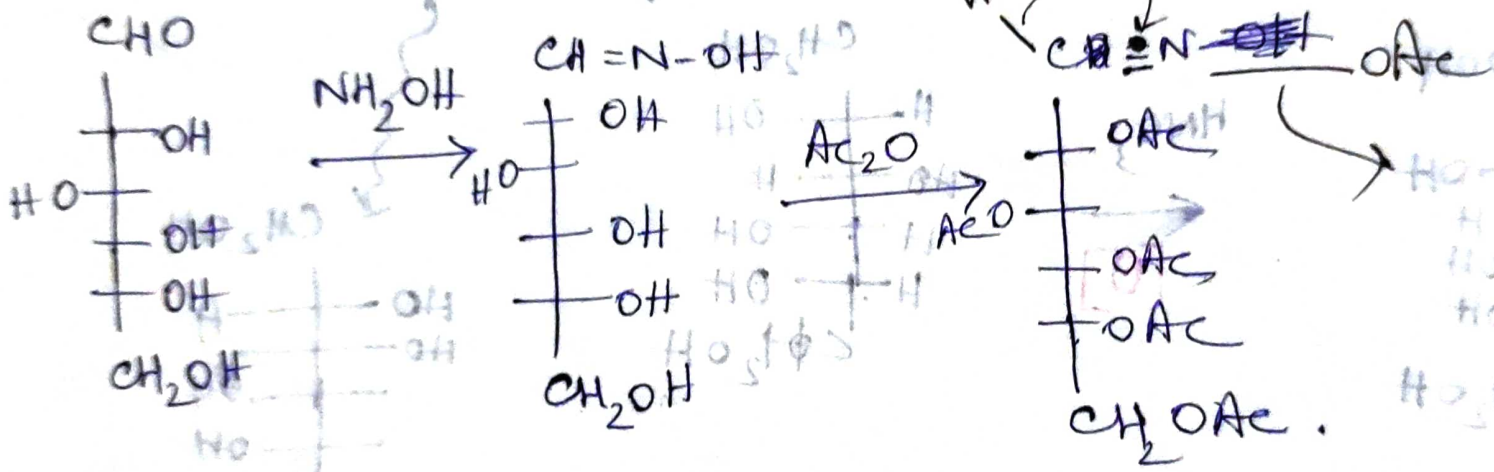 CHO
OH
HO
OH
OH
CH₂OH
NH₂OH
CH=N-OH
OH
HO
OH
OH
CH₂OH
Ac₂O
C≡N
OAc
OAc
AcO
OAc
OAc
CH₂OAc.